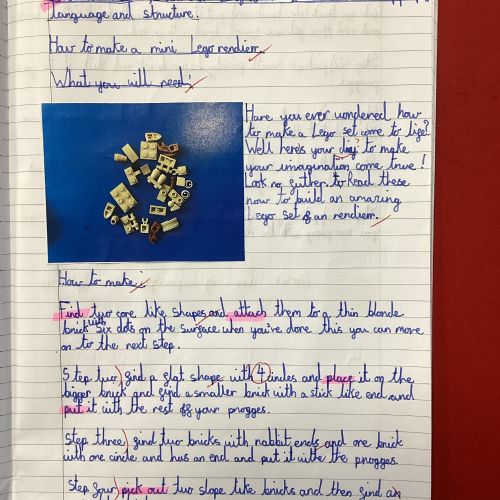 language and structure.
How to make a mini Lego rendier.
What you will need:
Have you ever wondered how
to make a Lego set come to life?
Well here's your day to make
your imagination come true!
Look no futher to Read these
now to build an amazing
Lego set of an rendiem.
How to make:
Find two cone like shapes and attach them to a thin blonde
brick with six dots on the surface when you've done this you can move
on to the next step.
Step two) find a flat shape with 4 circles and place it on the
bigger brick and find a smaller brick with a stick like end and
put it with the rest off your progges.
Step three) find two bricks with rabbit ends and one brick
with one circle and has an end and put it withe the progges.
Step four) pick out two slope like bricks and then find an